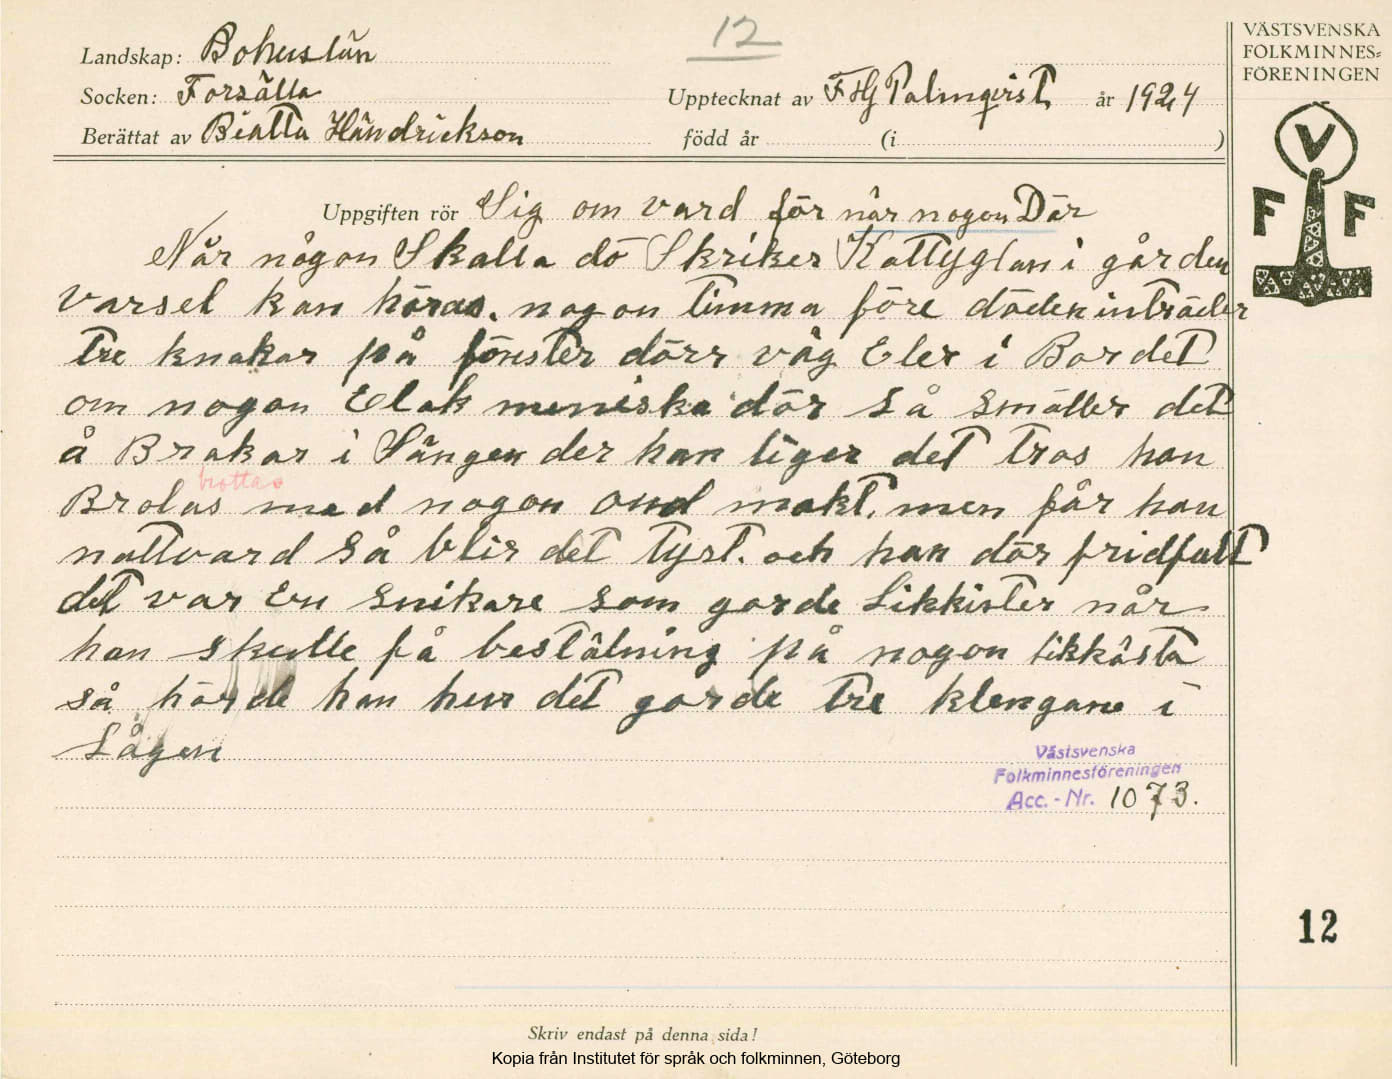 12
VÄSTSVENSKA
FOLKMINNES=
FÖRENINGEN
Landskap: Bohuslän
Socken: Forsälla
Upptecknat av FHG Palmqvist år 1924
Berättat av Beatta Händrickson född år (i )
V
F F
Uppgiften rör Sig om vard för när nogon Där
Når någon Skalla dö Skriker Kattyglan i gården
varsel kan höras. nogon timma före döden inträder
tre knakar på fönster dörr väg Eler i Bordet
om nogon Elak meniska dör så smäller det
å Brakar i Sängen der han liger det tros han
brottas
Brolas med nogon ond makt. men får han
nattvard så blir det tyst. och han dör fridfult
det var En snikare som gorde Likkister når
han skulle få bestälning på nogon likkästa
så hörde han hur det gorde tre klengane i
Sågen
Västsvenska
Folkminnesföreningen
Acc.-Nr. 1073.
12
Skriv endast på denna sida!
Kopia från Institutet för språk och folkminnen, Göteborg